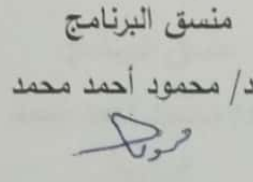 منسق البرنامج
د/ محمود أحمد محمد